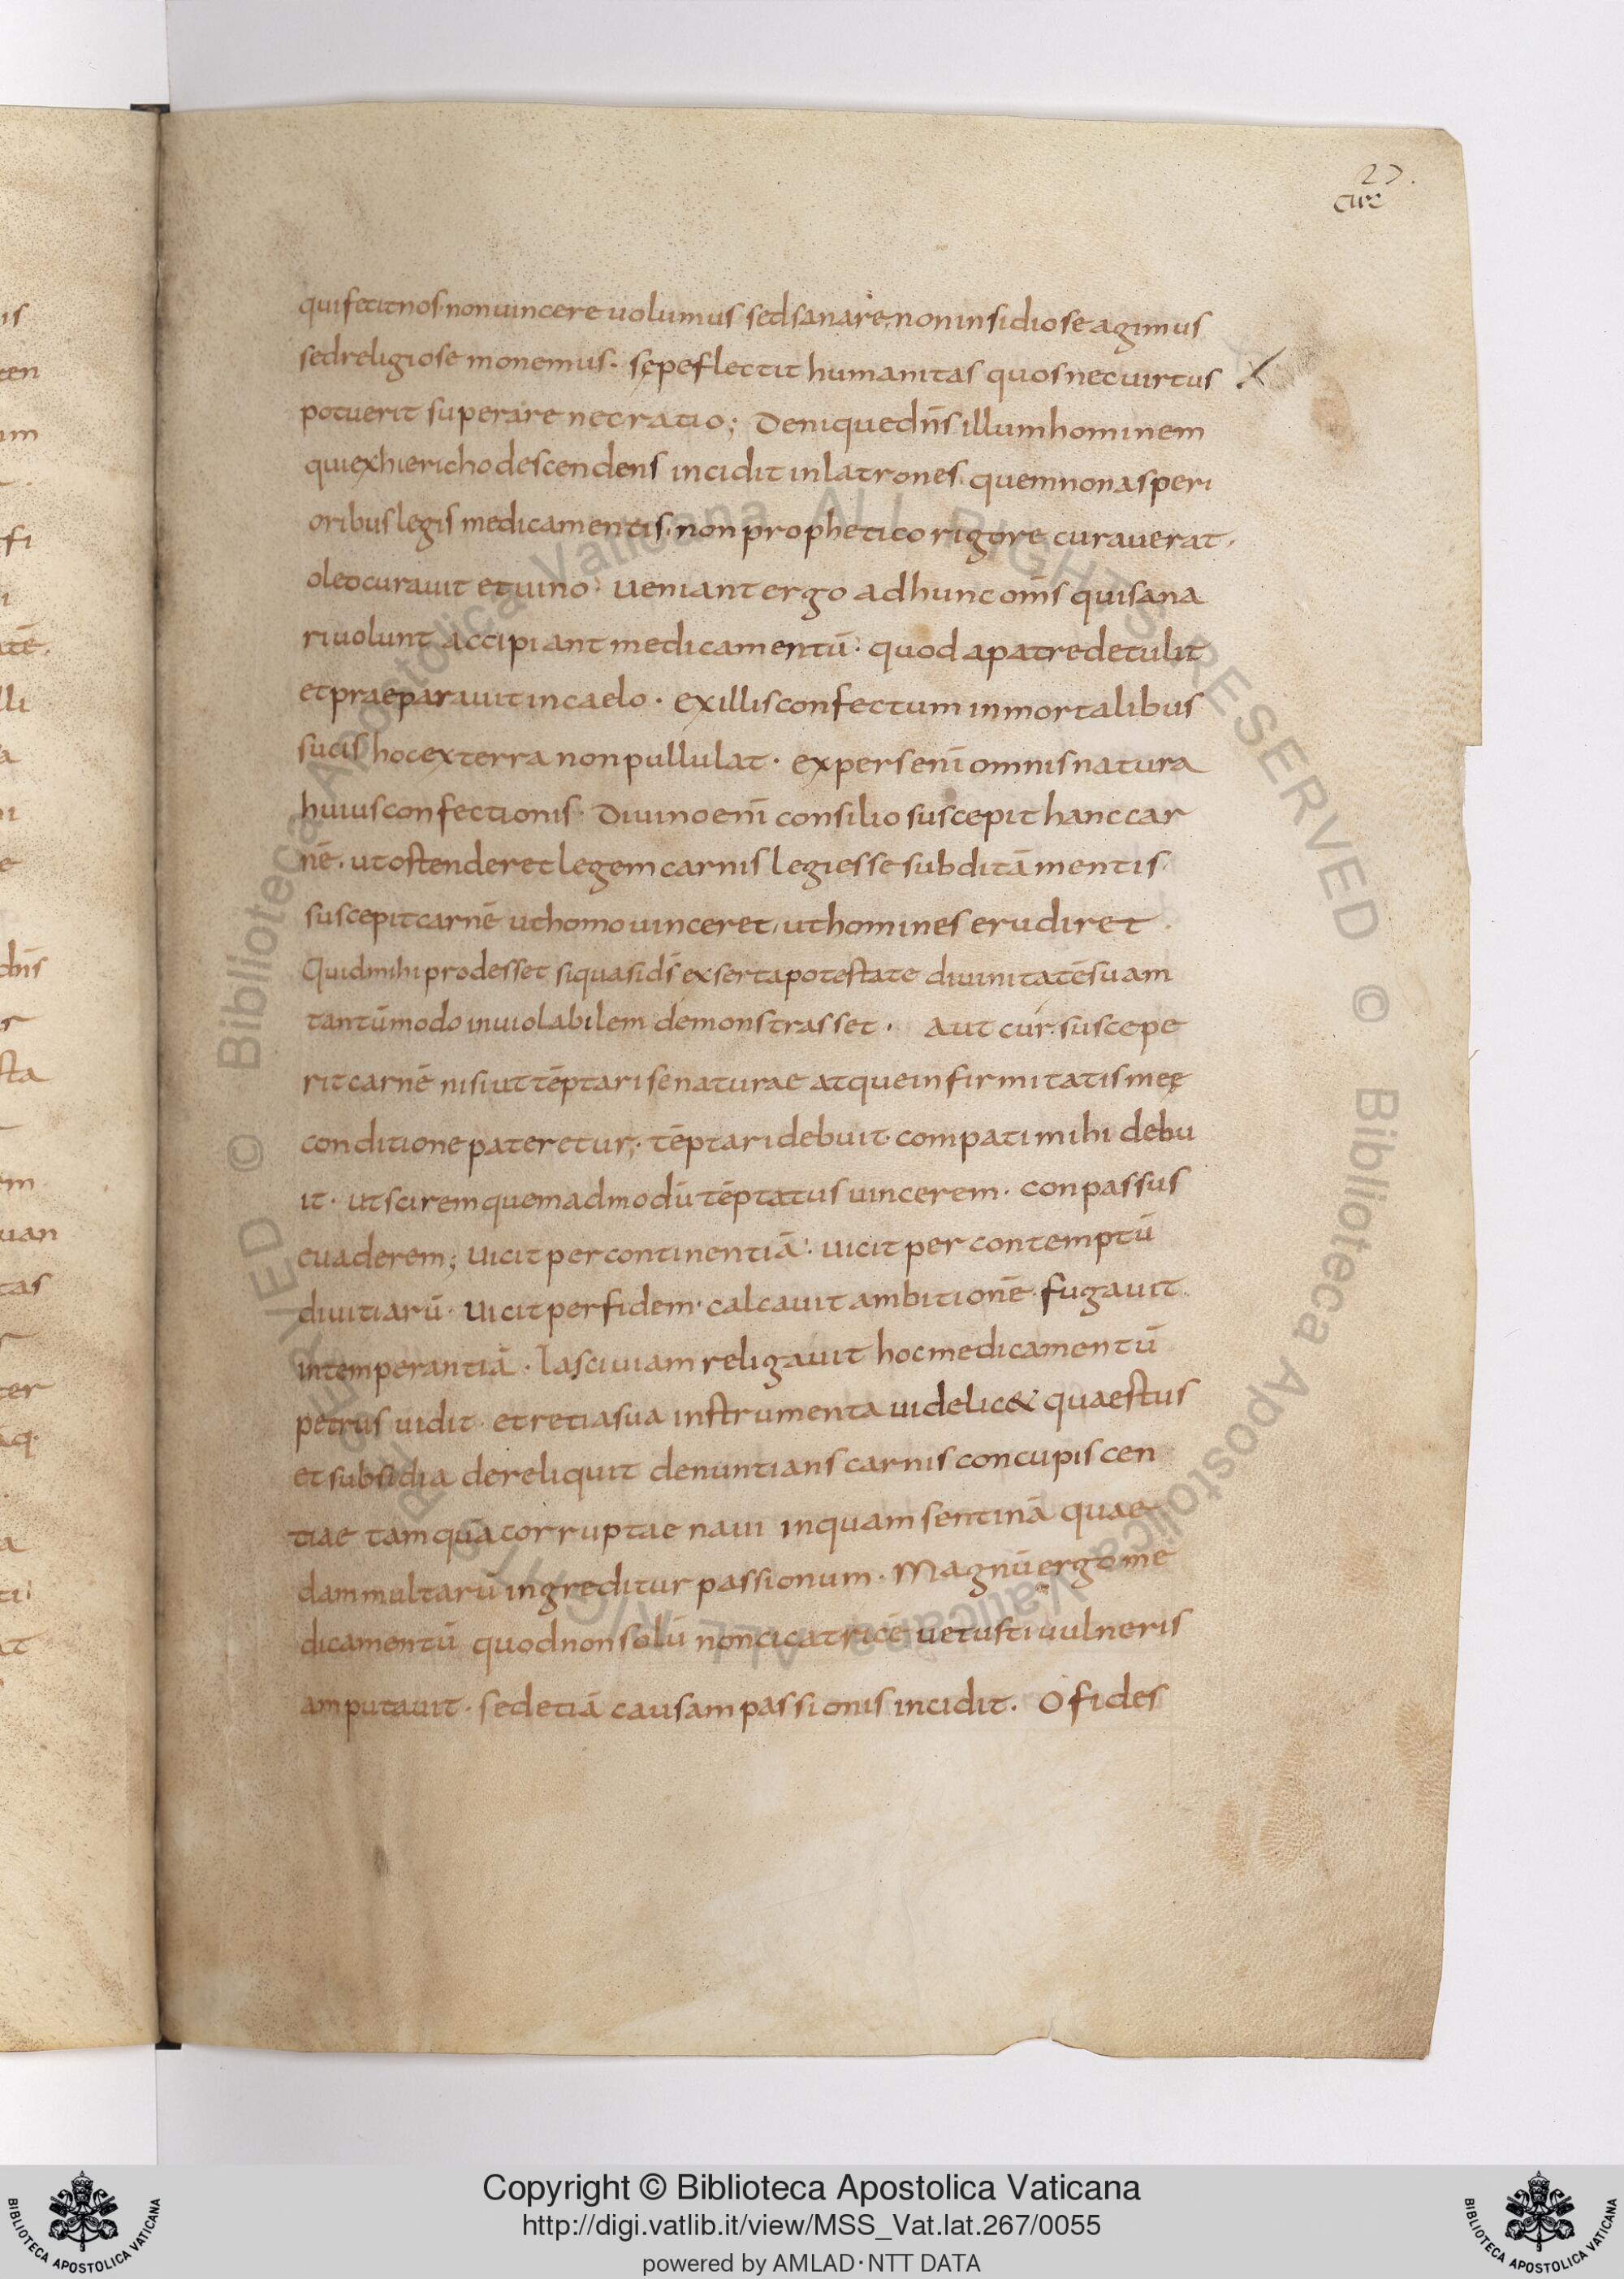 27.
qui fecit nos· non uincere uolumus sed sanare, non insidiose agimus
sed religiose monemus· sępe flectit humanitas quos nec uirtus
potuerit superare nec ratio; Denique dn̄s illum hominem
qui ex hiericho descendens incidit in latrones· quem non asperi
oribus legis medicamentis, non prophetico rigore curauerat·
oleo curauit et uino· Ueniant ergo ad hunc om̄s qui sana
ri uolunt accipiant medicamentū· quod a patre detulit
et praeparauit in caelo· ex illis confectum inmortalibus
sucis hoc ex terra non pullulat· expers enī omnis natura
huius confectionis· Diuino enī consilio suscepit hanc car
nē· ut ostenderet legem carnis legi esse subditā mentis·
suscepit carnē ut homo uinceret, ut homines erudiret·
Quid mihi prodesset si quasi dś exserta potestate diuinitatē suam
tantūmodo inuiolabilem demonstrasset· Aut cur suscepe
rit carnē nisi ut tēptari se naturae atque infirmitatis meę
conditione pateretur;· tēptari debuit· compati mihi debu
it· ut scirem quemadmodū tēptatus uincerem· conpassus
euaderem; Uicit per continentiā· uicit per contemptū
diuitiarū· Uicit per fidem· calcauit ambitionē· fugauit
intemperantiā· lasciuiam religauit hoc medicamentū
petrus uidit· et retia sua instrumenta uidelic& quaestus
et subsidia dereliquit denuntians carnis concupiscen
tiae tamquā corruptae naui in quam sentinā quae
dam multarū ingreditur passionum· Magnū ergo me
dicamentū quod non solū non cicatricē uetusti uulneris
amputauit· sed etiā causam passionis incidit· O fides
Copyright © Biblioteca Apostolica Vaticana
http://digi.vatlib.it/view/MSS_Vat.lat.267/0055
powered by AMLAD·NTT DATA